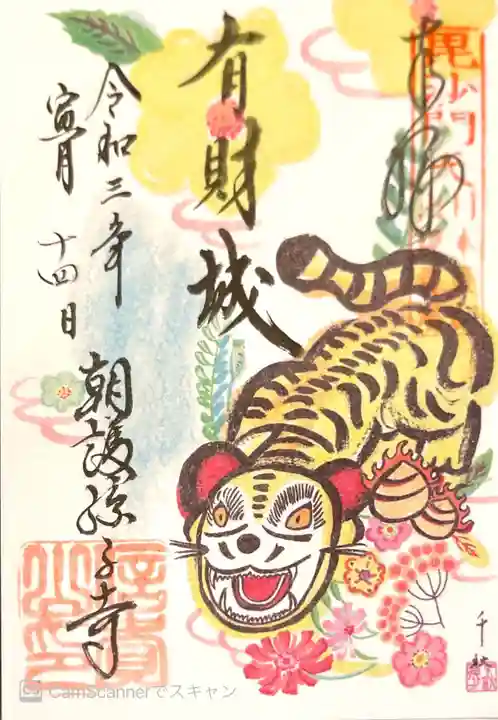 奉拝
毘沙門天
有財城
令和三年
寅月
十四日
朝護孫子寺
千
CamScannerでスキャン